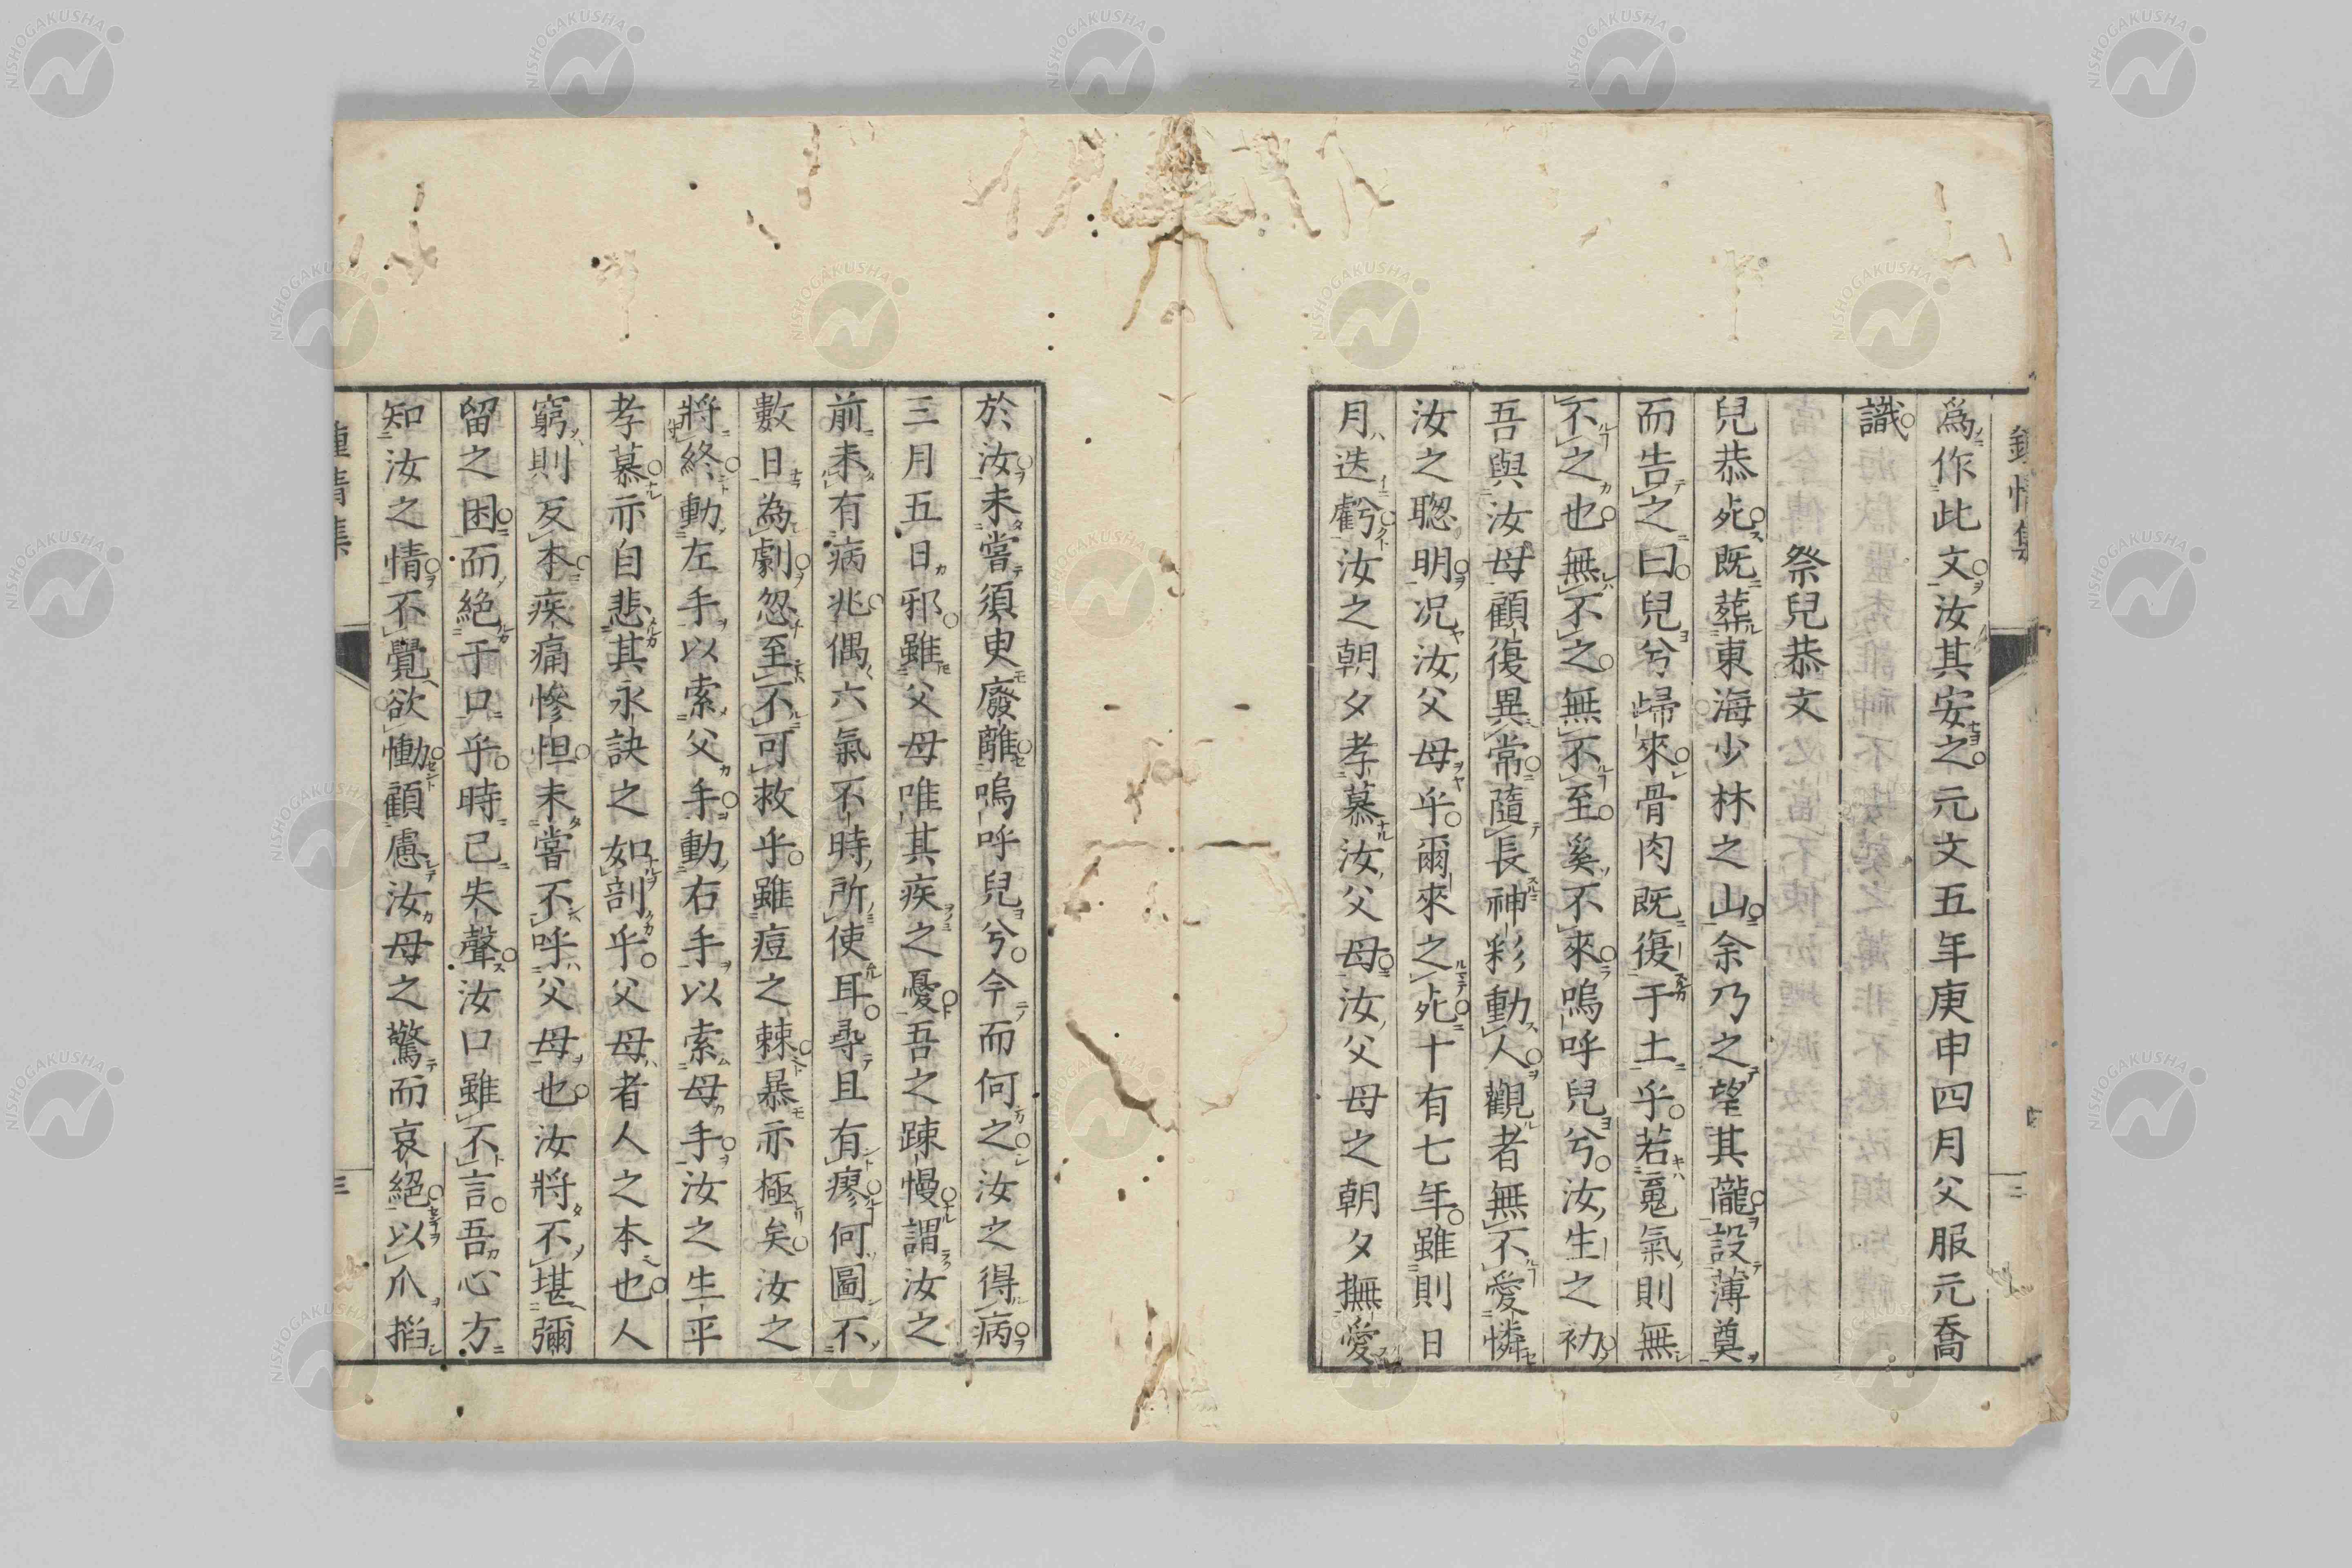 爲作此文汝其安之元文五年庚申四月父服元喬
識
祭兒恭文
兒恭死既葬東海少林之山余乃之望其隴設薄奠
而告之曰兒兮歸來骨肉既復于土乎若冤氣則無
不之也無不之無不至奚不來嗚呼兒兮汝生之初
吾與汝母顧復異常隨長神彩動人觀者無不愛憐
汝之聡明况汝父母乎爾來之死十有七年雖則日
月迭虧汝之朝夕孝慕汝父母汝父母之朝夕撫愛
於汝未嘗須臾廢離嗚呼兒兮今而何之汝之得病
三月五日邪雖父母唯其疾之憂吾之踈慢謂汝之
前未有病兆偶六氣不時所使耳尋且有瘳何圖不
數日為劇忽至不可救乎雖痘之棘暴亦極矣汝之
將終動左手以索父手動右手以索母手汝之生平
孝慕亦自悲其永訣之如剖乎父母者人之本也人
窮則反本疾痛慘怛未嘗不呼父母也汝將不堪彌
留之困而絕于口乎時已失聲汝口雖不言吾心方
知汝之情不覺欲慟顧慮汝母之驚而哀絕以爪搯
鍾情集
三
NISHOGAKUSHA